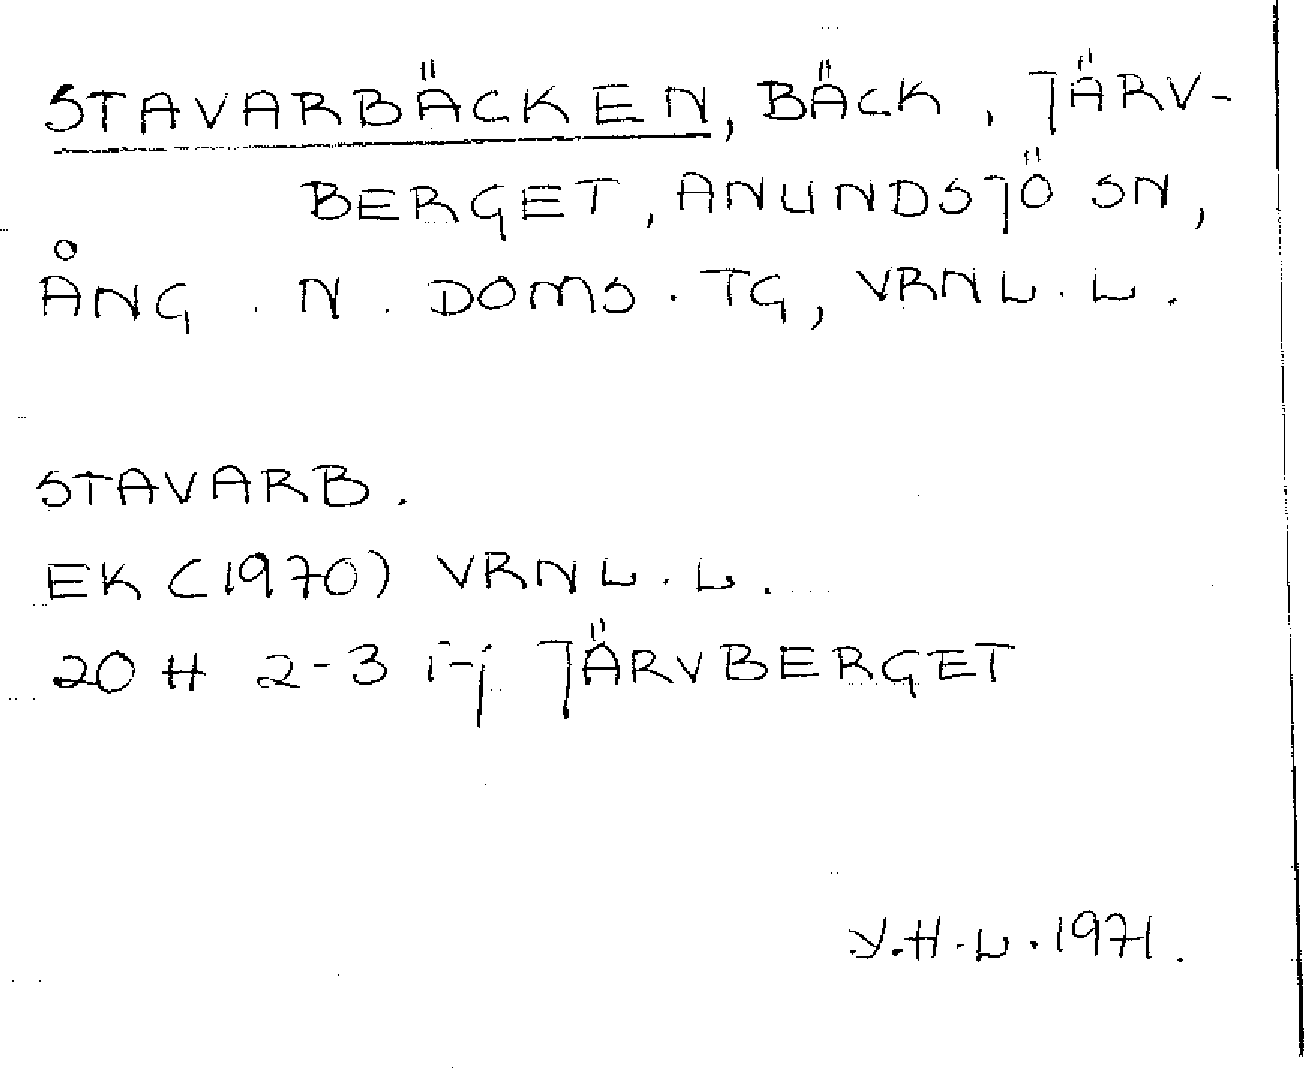 STAVARBÄCKEN, BÄCK, JÄRV-
BERGET, ANUNDSJÖ SN,
ÅNG. N. DOMS. TG, VRNL. L.
STAVARB.
EK (1970) VRNL. L.
20 H 2-3 i-j JÄRVBERGET
Y.H.L. 1971.